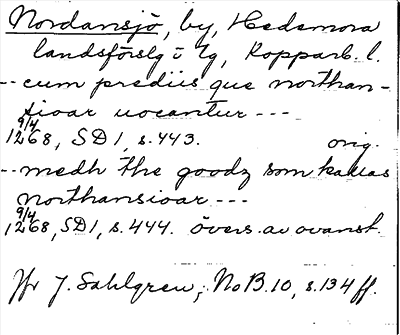 Nordansjö, by, Hedemora
landsförslg i lg, Kopparb. l.
-- cum prediis que northan-
sioar uocantur ---
9/4
1268, SD 1, s. 443. orig.
-- medh the godz som kallas
northansioar ---
9/4
1268, SD 1, s. 444. övers. av ovanst.
Jfr J. Sahlgren, NoB. 10, s. 134 ff.